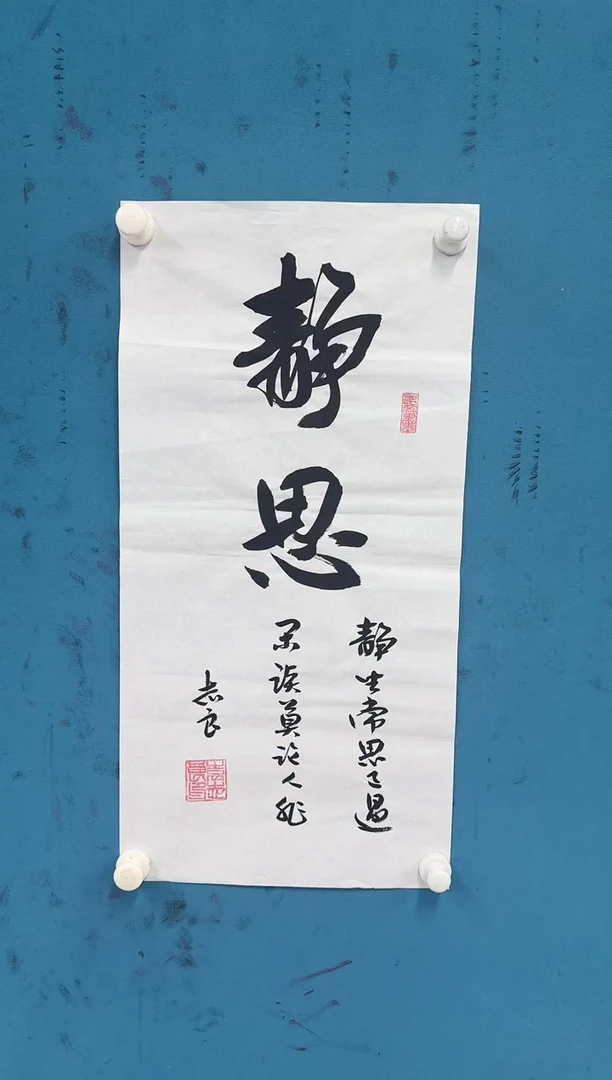 静思
静坐常思己過
闲谈莫论人非
志良